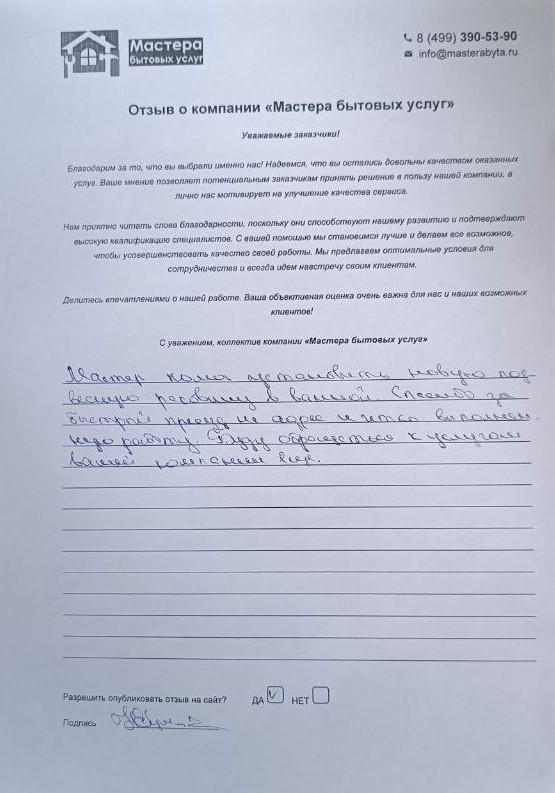 Мастера
бытовых услуг
8 (499) 390-53-90
info@masterabyta.ru
Отзыв о компании «Мастера бытовых услуг»
Уважаемые заказчики!
Благодарим за то, что вы выбрали именно нас! Надеемся, что вы остались довольны качеством оказанных
услуг. Ваше мнение позволяет потенциальным заказчикам принять решение в пользу нашей компании, а
лично нас мотивирует на улучшение качества сервиса.
Нам приятно читать слова благодарности, поскольку они способствуют нашему развитию и подтверждают
высокую квалификацию специалистов. С вашей помощью мы становимся лучше и делаем все возможное,
чтобы усовершенствовать качество своей работы. Мы предлагаем оптимальные условия для
сотрудничества и всегда идем навстречу своим клиентам.
Делитесь впечатлениями о нашей работе. Ваша объективная оценка очень важна для нас и наших возможных
клиентов!
С уважением, коллектив компании «Мастера бытовых услуг»
Мастер установить новую под-
весную раковину в ванной. Спасибо за
быстрый приезд на адрес и выполнен-
ную работу. Буду обращаться к услугам
вашей компании еще.
Разрешить опубликовать отзыв на сайт? ДА НЕТ
Подпись